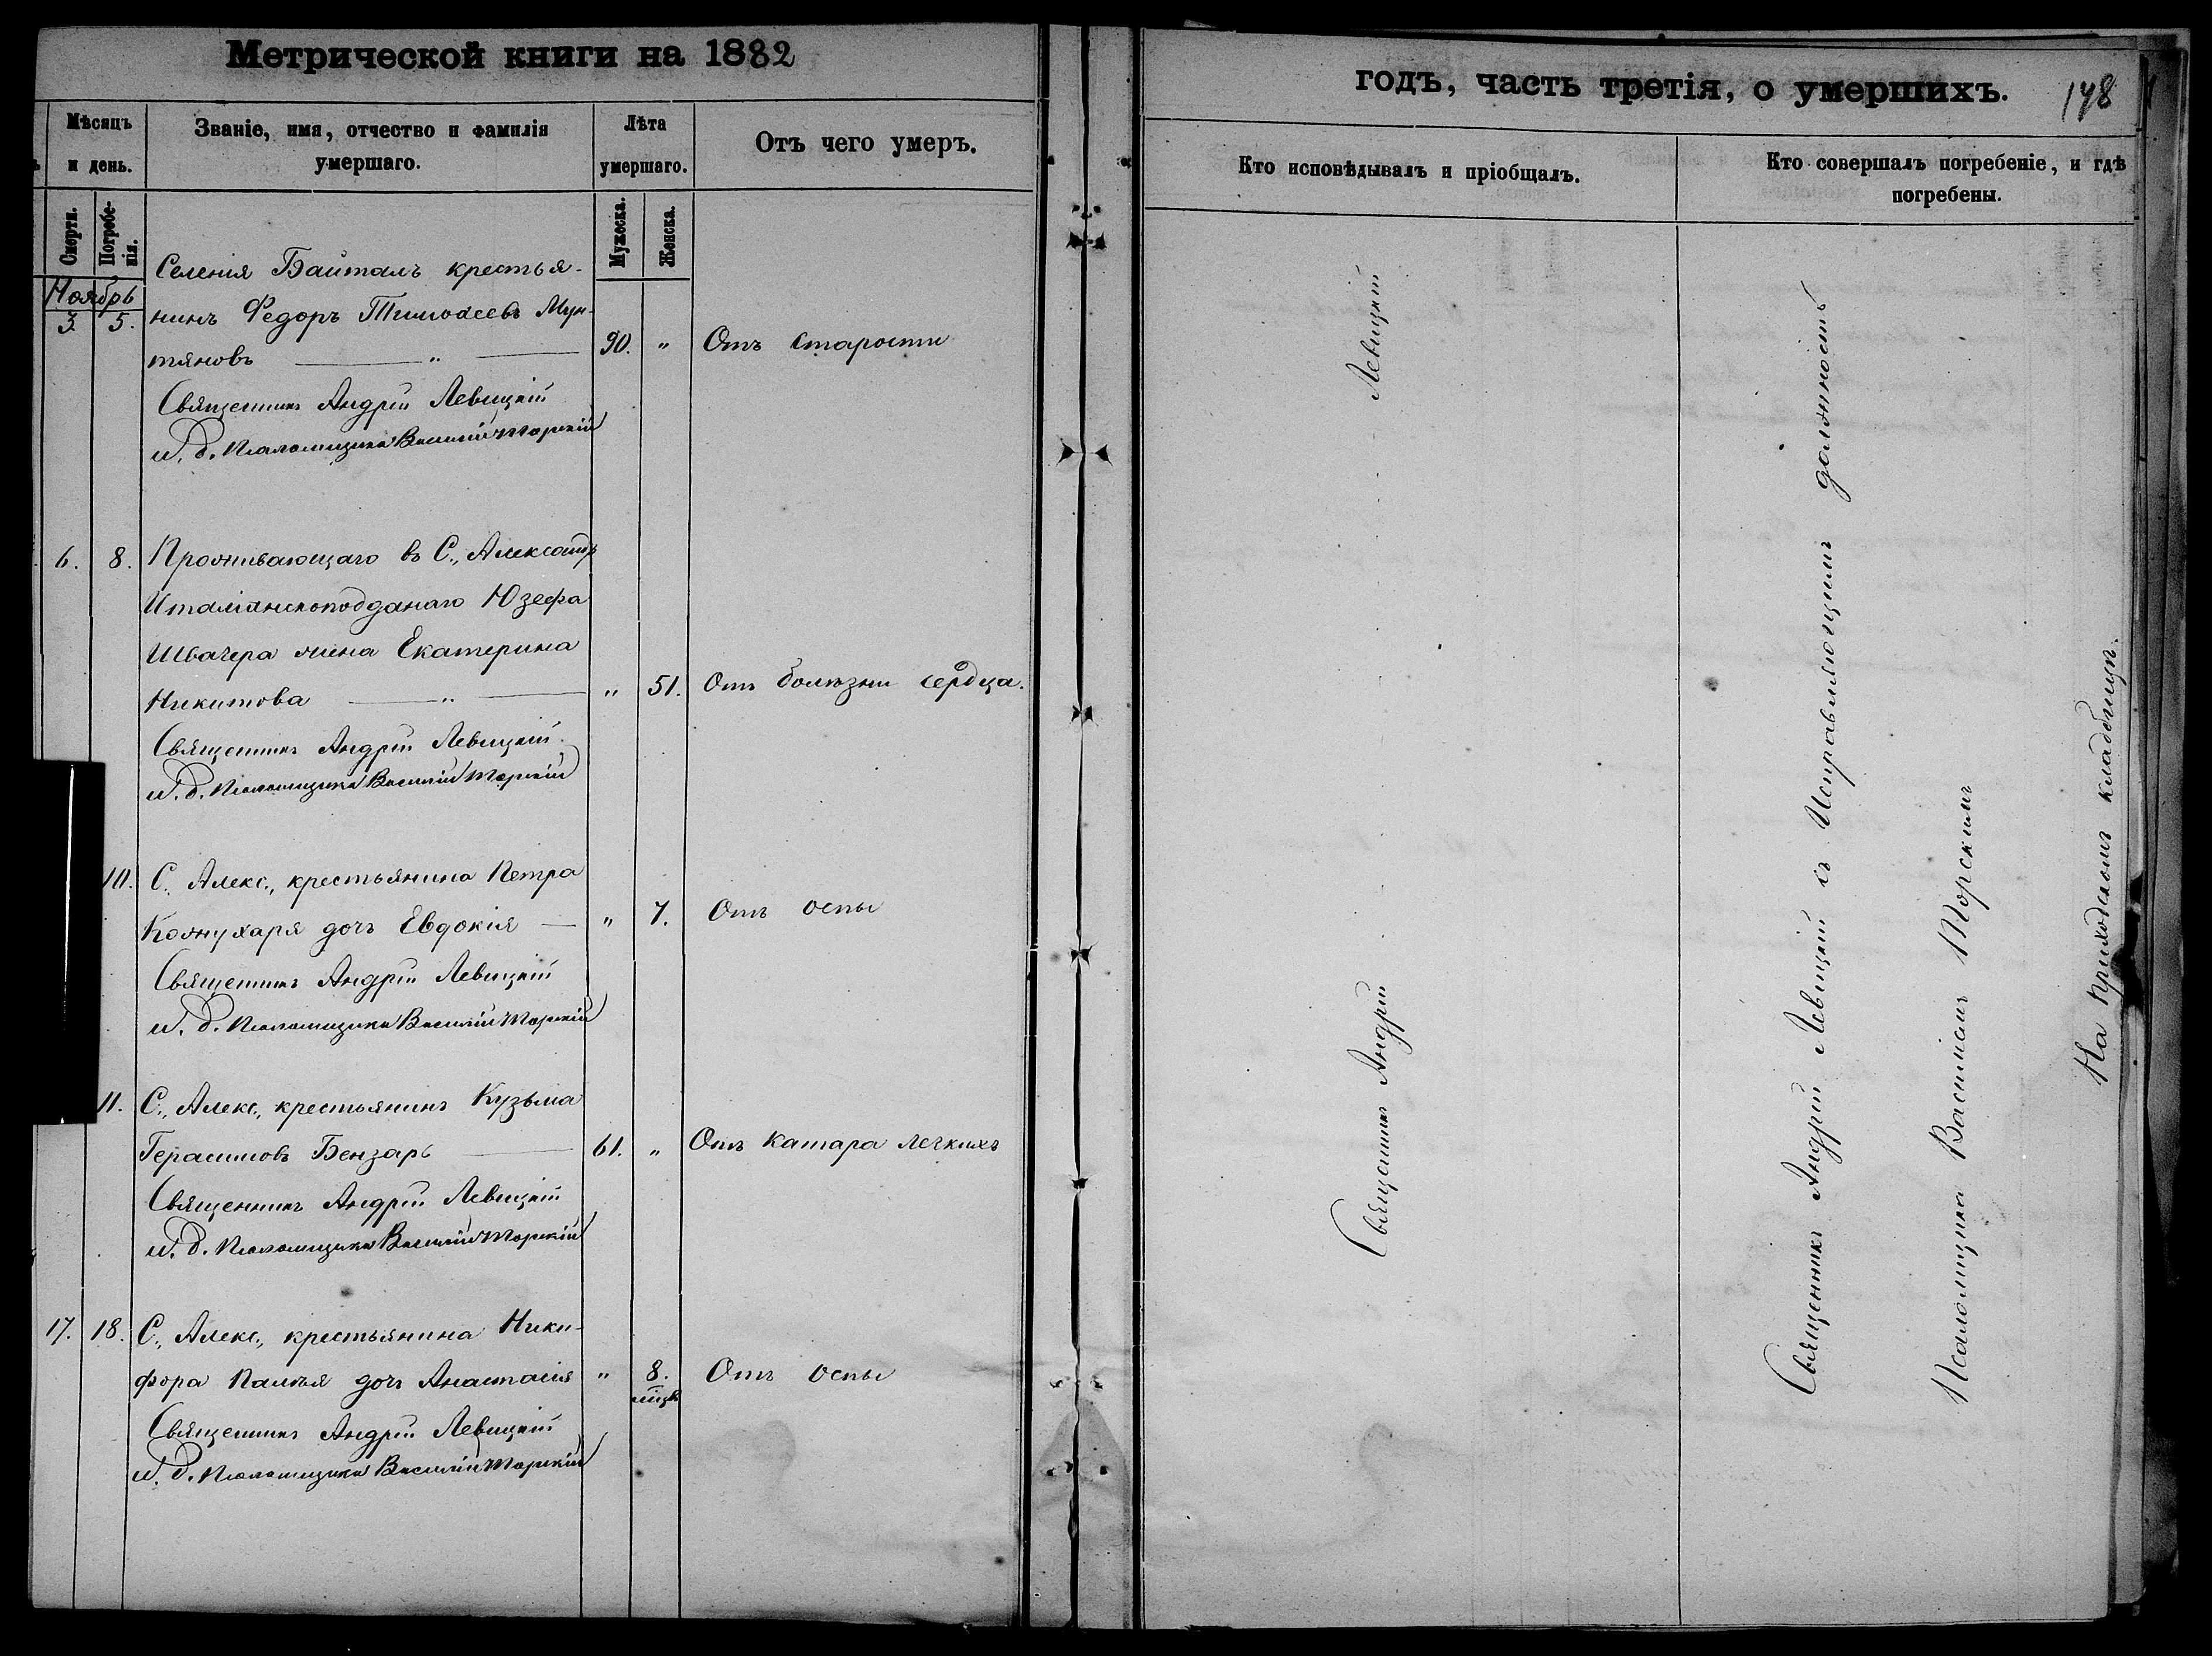 Метрической книги на 1882
Мѣсяцъ и день.
Званіе, имя, отчество и фамилія умершаго.
Лѣта умершаго.
Отъ чего умеръ.
Смерти.
Погребенія.
Мужеска.
Женска.
Ноябрь
3. 5. Селенія Байталъ крестья-
нинъ Федоръ Тимоѳеевъ Мун-
тяновъ — „ — 90. „ Отъ старости
Священникъ Андрій Левицкій
И. д. Псаломщика Василій Торскій
6. 8. Проживающаго въ С., Александр
Италіанскоподданаго Юзефа
Швачера жена Екатерина
Никитова — „ — „ 51. Отъ болѣзни сердца.
Священникъ Андрій Левицкій
И. д. Псаломщика Василій Торскій
10. С. Алекс., крестьянина Петра
Кожухаря дочь Евдокія — „ 7. Отъ оспы
Священникъ Андрій Левицкій
И. д. Псаломщика Василій Торскій
11. С., Алекс., крестьянинъ Кузьма
Герасимовъ Бензарь — 61. „ Отъ катара легкихъ
Священникъ Андрій Левицкій
И. д. Псаломщика Василій Торскій
17. 18. С., Алекс., крестьянина Ники-
фора Палѣя дочь Анастасія „ 8. мцв Отъ оспы
Священникъ Андрій Левицкій
И. д. Псаломщика Василій Торскій
годъ, часть третія, о умершихъ.
148
Кто исповѣдывалъ и пріобщалъ.
Кто совершалъ погребеніе, и гдѣ погребены.
Священникъ Андрій Левицкій
Священникъ Андрій Левицкій съ Исправляющимъ должность
Псаломщика Василіемъ Торскимъ
На приходскомъ кладбищѣ.